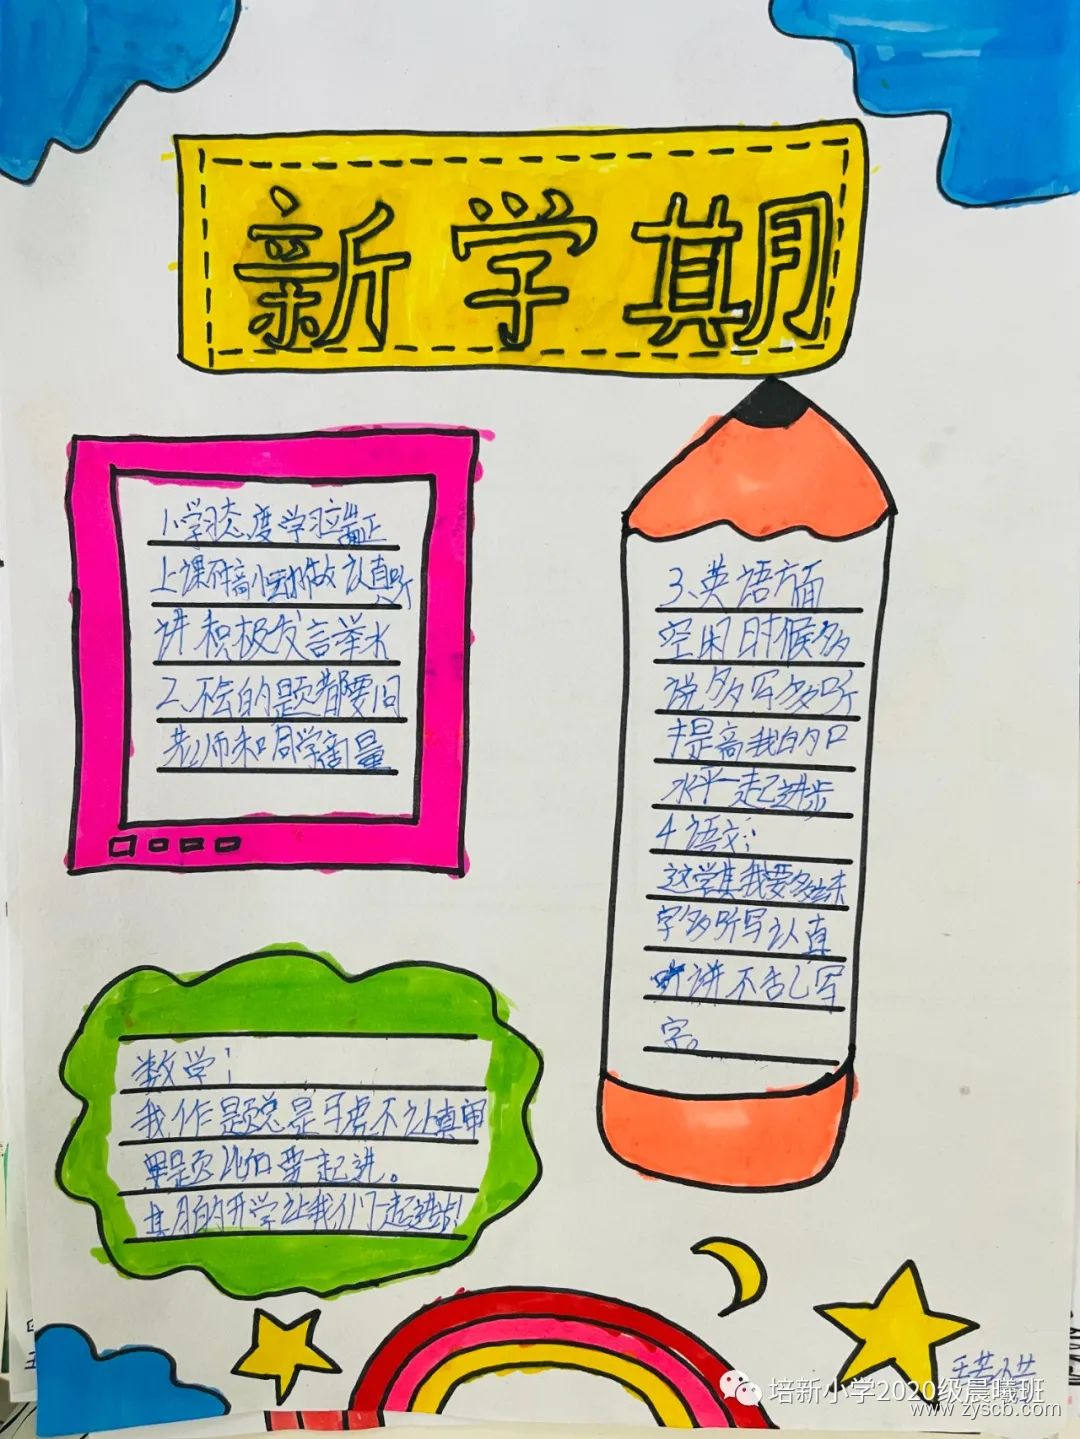 新学期
1、学习态度学习端正
上课不搞小动作做认真听
讲积极发言举水
2、不会的题都要问
老师和同学商量
3、英语方面
空闲时候多
说多写多听
提高我的口
水平一起进步
4语文：
这学其我要多练
字多听写认真
听讲不舌乚写
字。
数学：
我作是题总是 不认真审
题 要一起进。
其月的开学让我们一起进步!
培新小学2020级晨曦班
www.zyscb.com